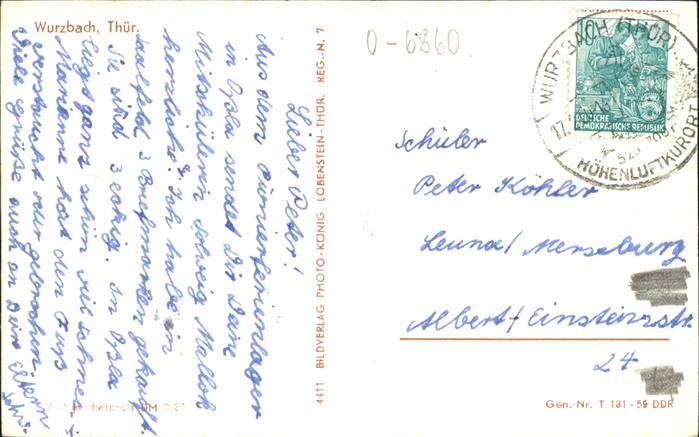 Wurzbach, Thür.
Lieber Peter!
Aus dem Pionierferienlager
in Oßla sendet Dir Deine
Mitschülerin Solveig Mallok
herzliche Ich habe in
3 Briefmarken gekauft.
Sie sind 3 eckig. In Oßla
liegt ganz schön viel Schnee.
Marianne hat den Fuß
verstaucht oder gebrochen.
Viele Grüße auch an Deine Eltern
4411 BILDVERLAG PHOTO-KÖNIG LOBENSTEIN-THÜR. REG.-N. 7
0-6860
DEUTSCHE
DEMOKRATISCHE REPUBLIK
WURZBACH (THÜR)
HÖHENLUFTKURORT
Schüler
Peter Köhler
Leuna/Merseburg
Albert-Einsteinstr
24
DM 0.20
Gen.-Nr. T 131-59 DDR